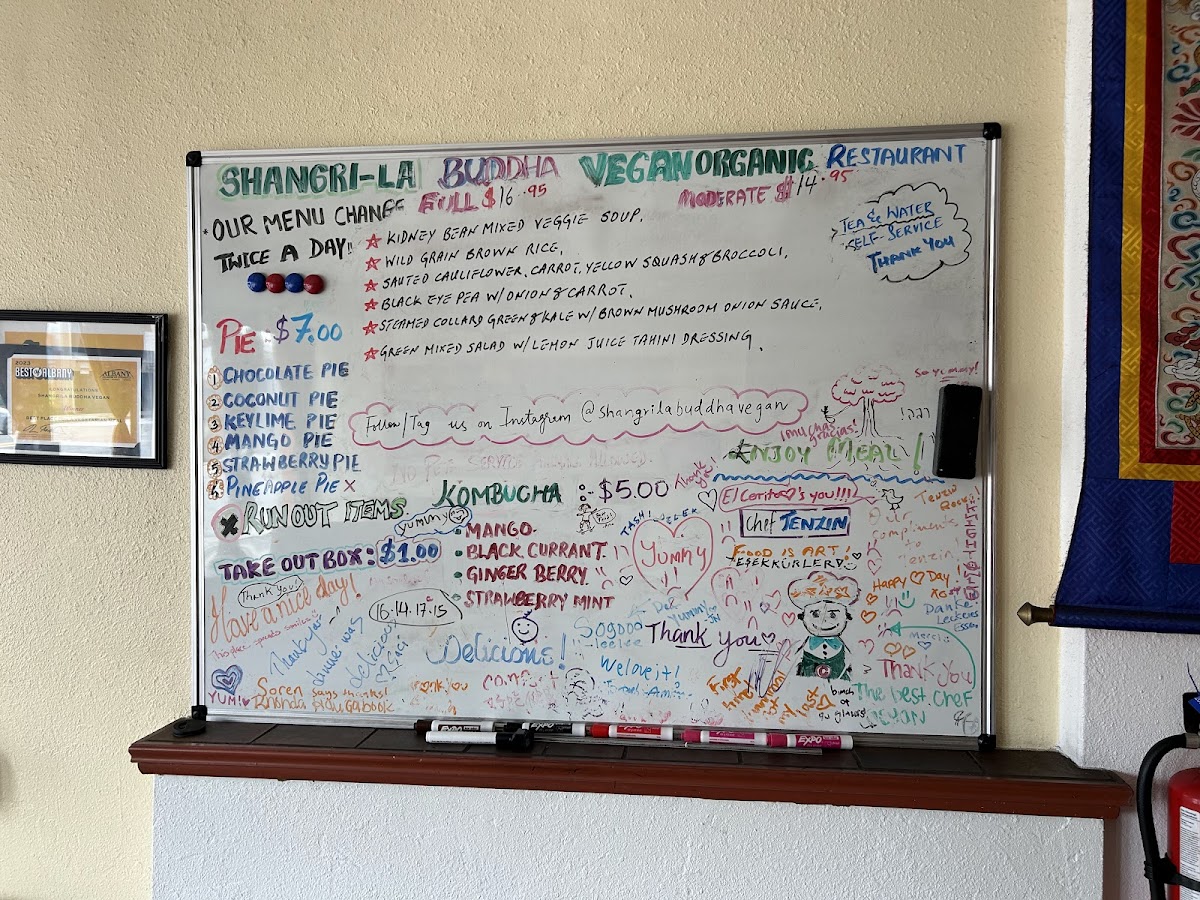 SHANGRI-LA BUDDHA VEGAN ORGANIC RESTAURANT
FULL $16.95 MODERATE $14.95
* OUR MENU CHANGE
TWICE A DAY!!
KIDNEY BEAN MIXED VEGGIE SOUP.
WILD GRAIN BROWN RICE,
SAUTED CAULIFLOWER, CARROT, YELLOW SQUASH & BROCCOLI,
BLACK EYE PEA W/ ONION & CARROT,
STEAMED COLLARD GREEN & KALE W/ BROWN MUSHROOM ONION SAUCE,
GREEN MIXED SALAD W/ LEMON JUICE TAHINI DRESSING.
TEA & WATER
SELF-SERVICE
THANK YOU
PIE - $7.00
1 CHOCOLATE PIE
2 COCONUT PIE
3 KEYLIME PIE
4 MANGO PIE
5 STRAWBERRY PIE
6 PINEAPPLE PIE X
X RUN OUT ITEMS
TAKE OUT BOX: $1.00
Follow/Tag us on Instagram @shangrilabuddhavegan
So yummy!
¡Muchas
gracias!
ENJOY MEAL!
KOMBUCHA :- $5.00
MANGO.
BLACK CURRANT.
GINGER BERRY.
STRAWBERRY MINT
yummy
Thank you!
El Cerrito ♡'s you!!!
Chef TENZIN
FOOD IS ART!
TASHI DELEK
YUMMY
Thank you!
Have a nice day!
16.14.17.15
Delicious!
Thank you
We love it!
Happy ♡ Day!
Danke
Leckeres
Essen
Merci
Thank you
The best chef
YUM!
Soren says thanks!
Rhonda
Thank you
First
time
BEST OF ALBANY
2023
ALBANY
CONGRATULATIONS
SHANGRILA BUDDHA VEGAN
EXPO
EXPO
EXPO